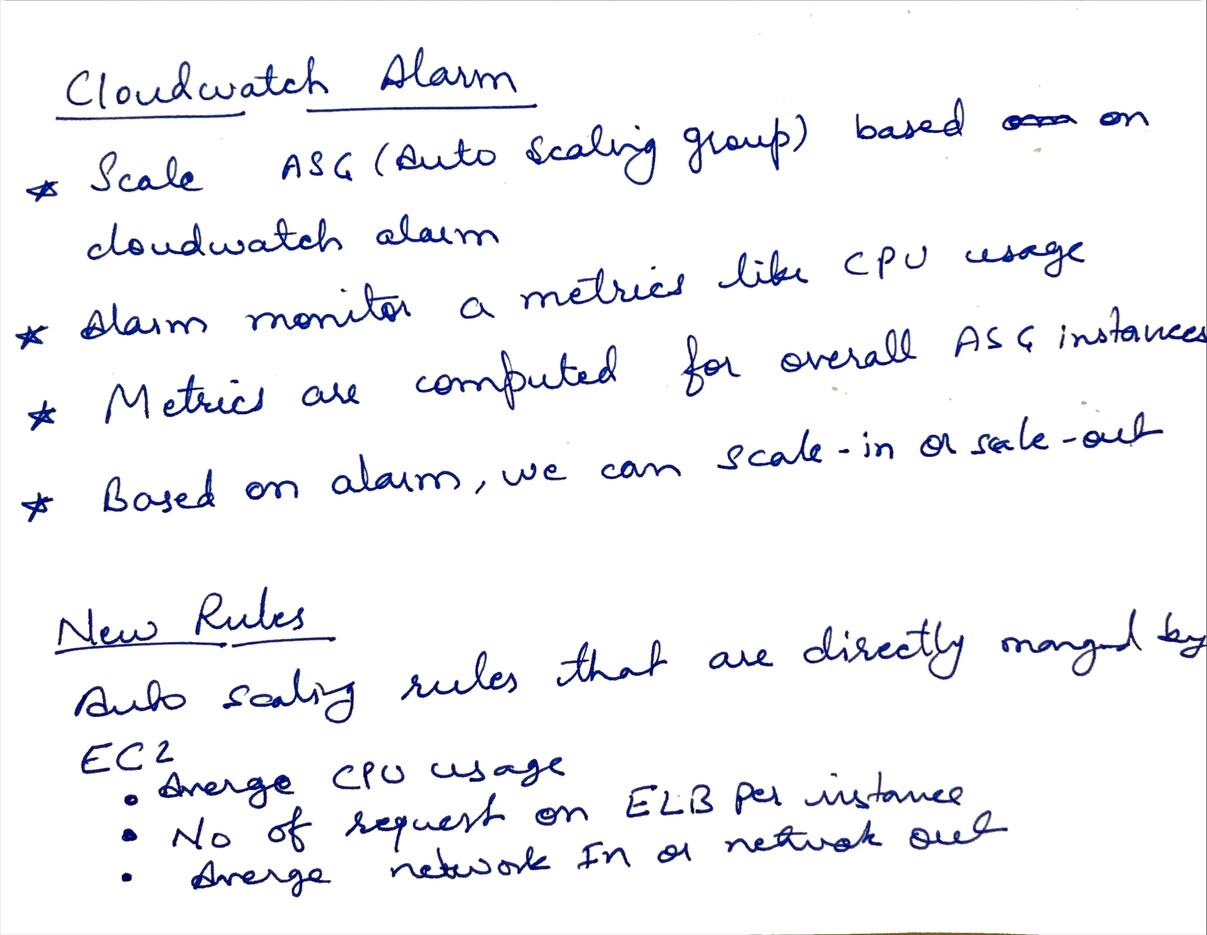 Cloudwatch Alarm
* Scale ASG (Auto Scaling group) based on
cloudwatch alarm
* Alarm monitor a metrics like CPU usage
* Metrics are computed for overall ASG instances
* Based on alarm, we can scale-in or scale-out
New Rules
Auto scaling rules that are directly manged by
EC2
• Averge CPU usage
• No of request on ELB per instance
• Averge network In or network out